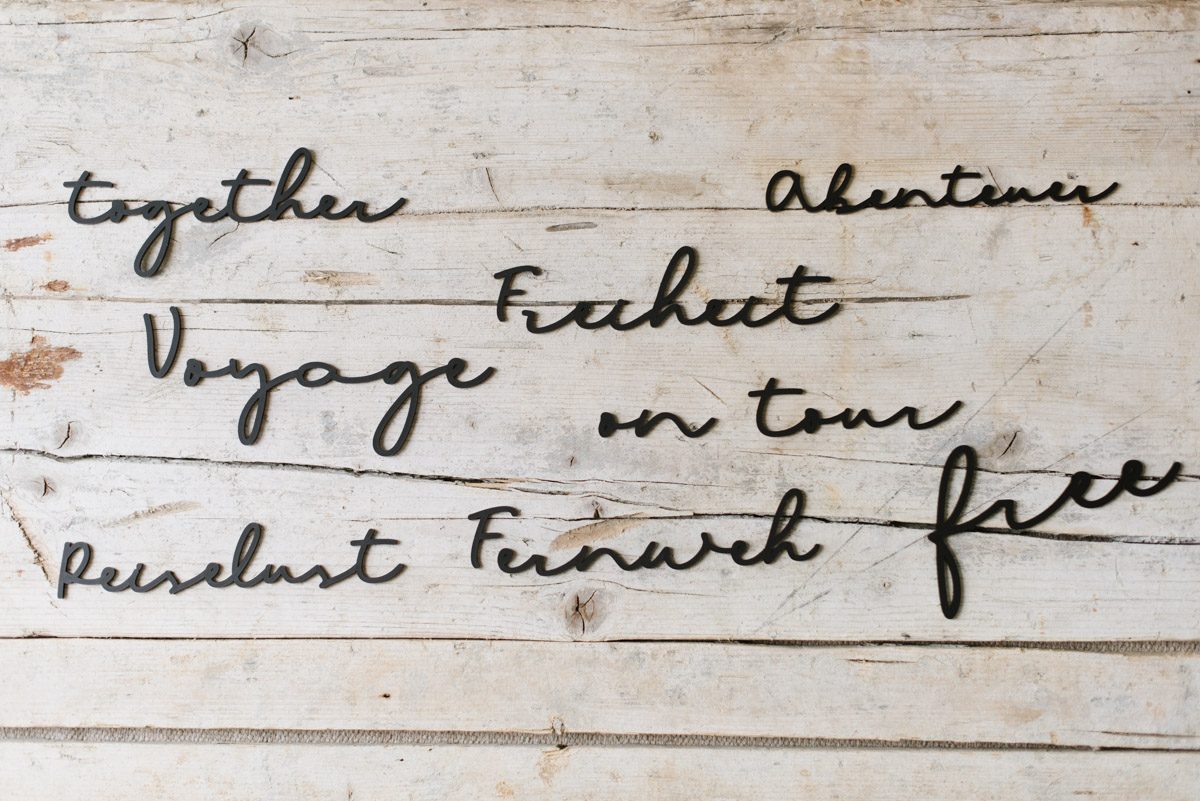 together
Abenteuer
Freiheit
Voyage
on tour
free
Reiselust
Fernweh